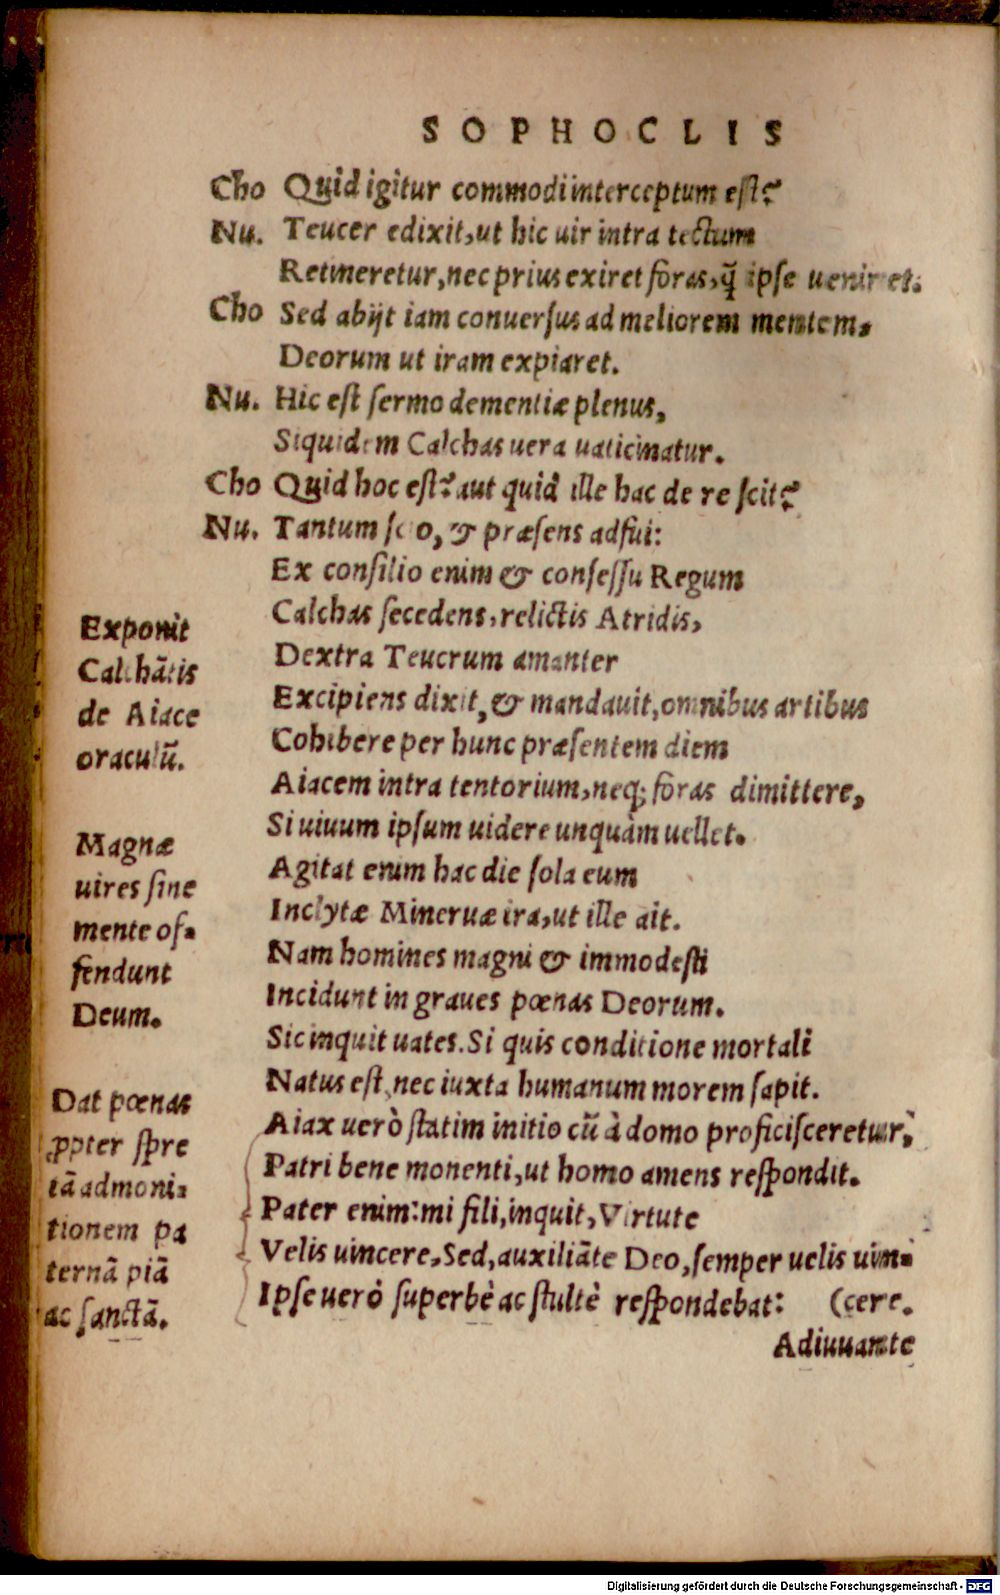 SOPHOCLIS
Cho Quid igitur commodi interceptum est?
Nu. Teucer edixit, ut hic uir intra tectum
Retineretur, nec prius exiret foras, q̃ ipse ueniret.
Cho Sed abijt iam conuersus ad meliorem mentem,
Deorum ut iram expiaret.
Nu. Hic est sermo dementiæ plenus,
Siquidem Calchas uera uaticinatur.
Cho Quid hoc est? aut quid ille hac de re scit?
Nu. Tantum scio, & præsens adfui:
Ex consilio enim & consessu Regum
Calchas secedens, relictis Atridis,
Dextra Teucrum amanter
Excipiens dixit, & mandauit, omnibus artibus
Cohibere per hunc præsentem diem
Aiacem intra tentorium, neq; foras dimittere,
Si uiuum ipsum uidere unquàm uellet.
Agitat enim hac die sola eum
Inclytæ Mineruæ ira, ut ille ait.
Nam homines magni & immodesti
Incidunt in graues pœnas Deorum.
Sic inquit uates. Si quis conditione mortali
Natus est, nec iuxta humanum morem sapit.
Aiax uerò statim initio cũ à domo proficisceretur,
Patri bene monenti, ut homo amens respondit.
Pater enim: mi fili, inquit, Virtute
Velis uincere, Sed, auxiliãte Deo, semper uelis uin-
Ipse uerò superbè ac stultè respondebat: (cere.
Adiuuante
Exponit
Calchãtis
de Aiace
oraculũ.
Magnæ
uires sine
mente of-
fendunt
Deum.
Dat pœnas
ꝓpter spre
tã admoni-
tionem pa
ternã piã
ac sanctã.
Digitalisierung gefördert durch die Deutsche Forschungsgemeinschaft - DFG